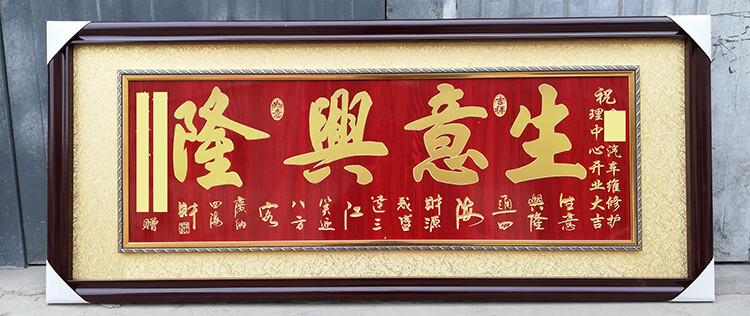 祝 汽车维修护
理中心开业大吉
生意興隆
吉祥
如意
生意興隆通四海財源茂盛達三江笑迎八方客廣納四海財
赠